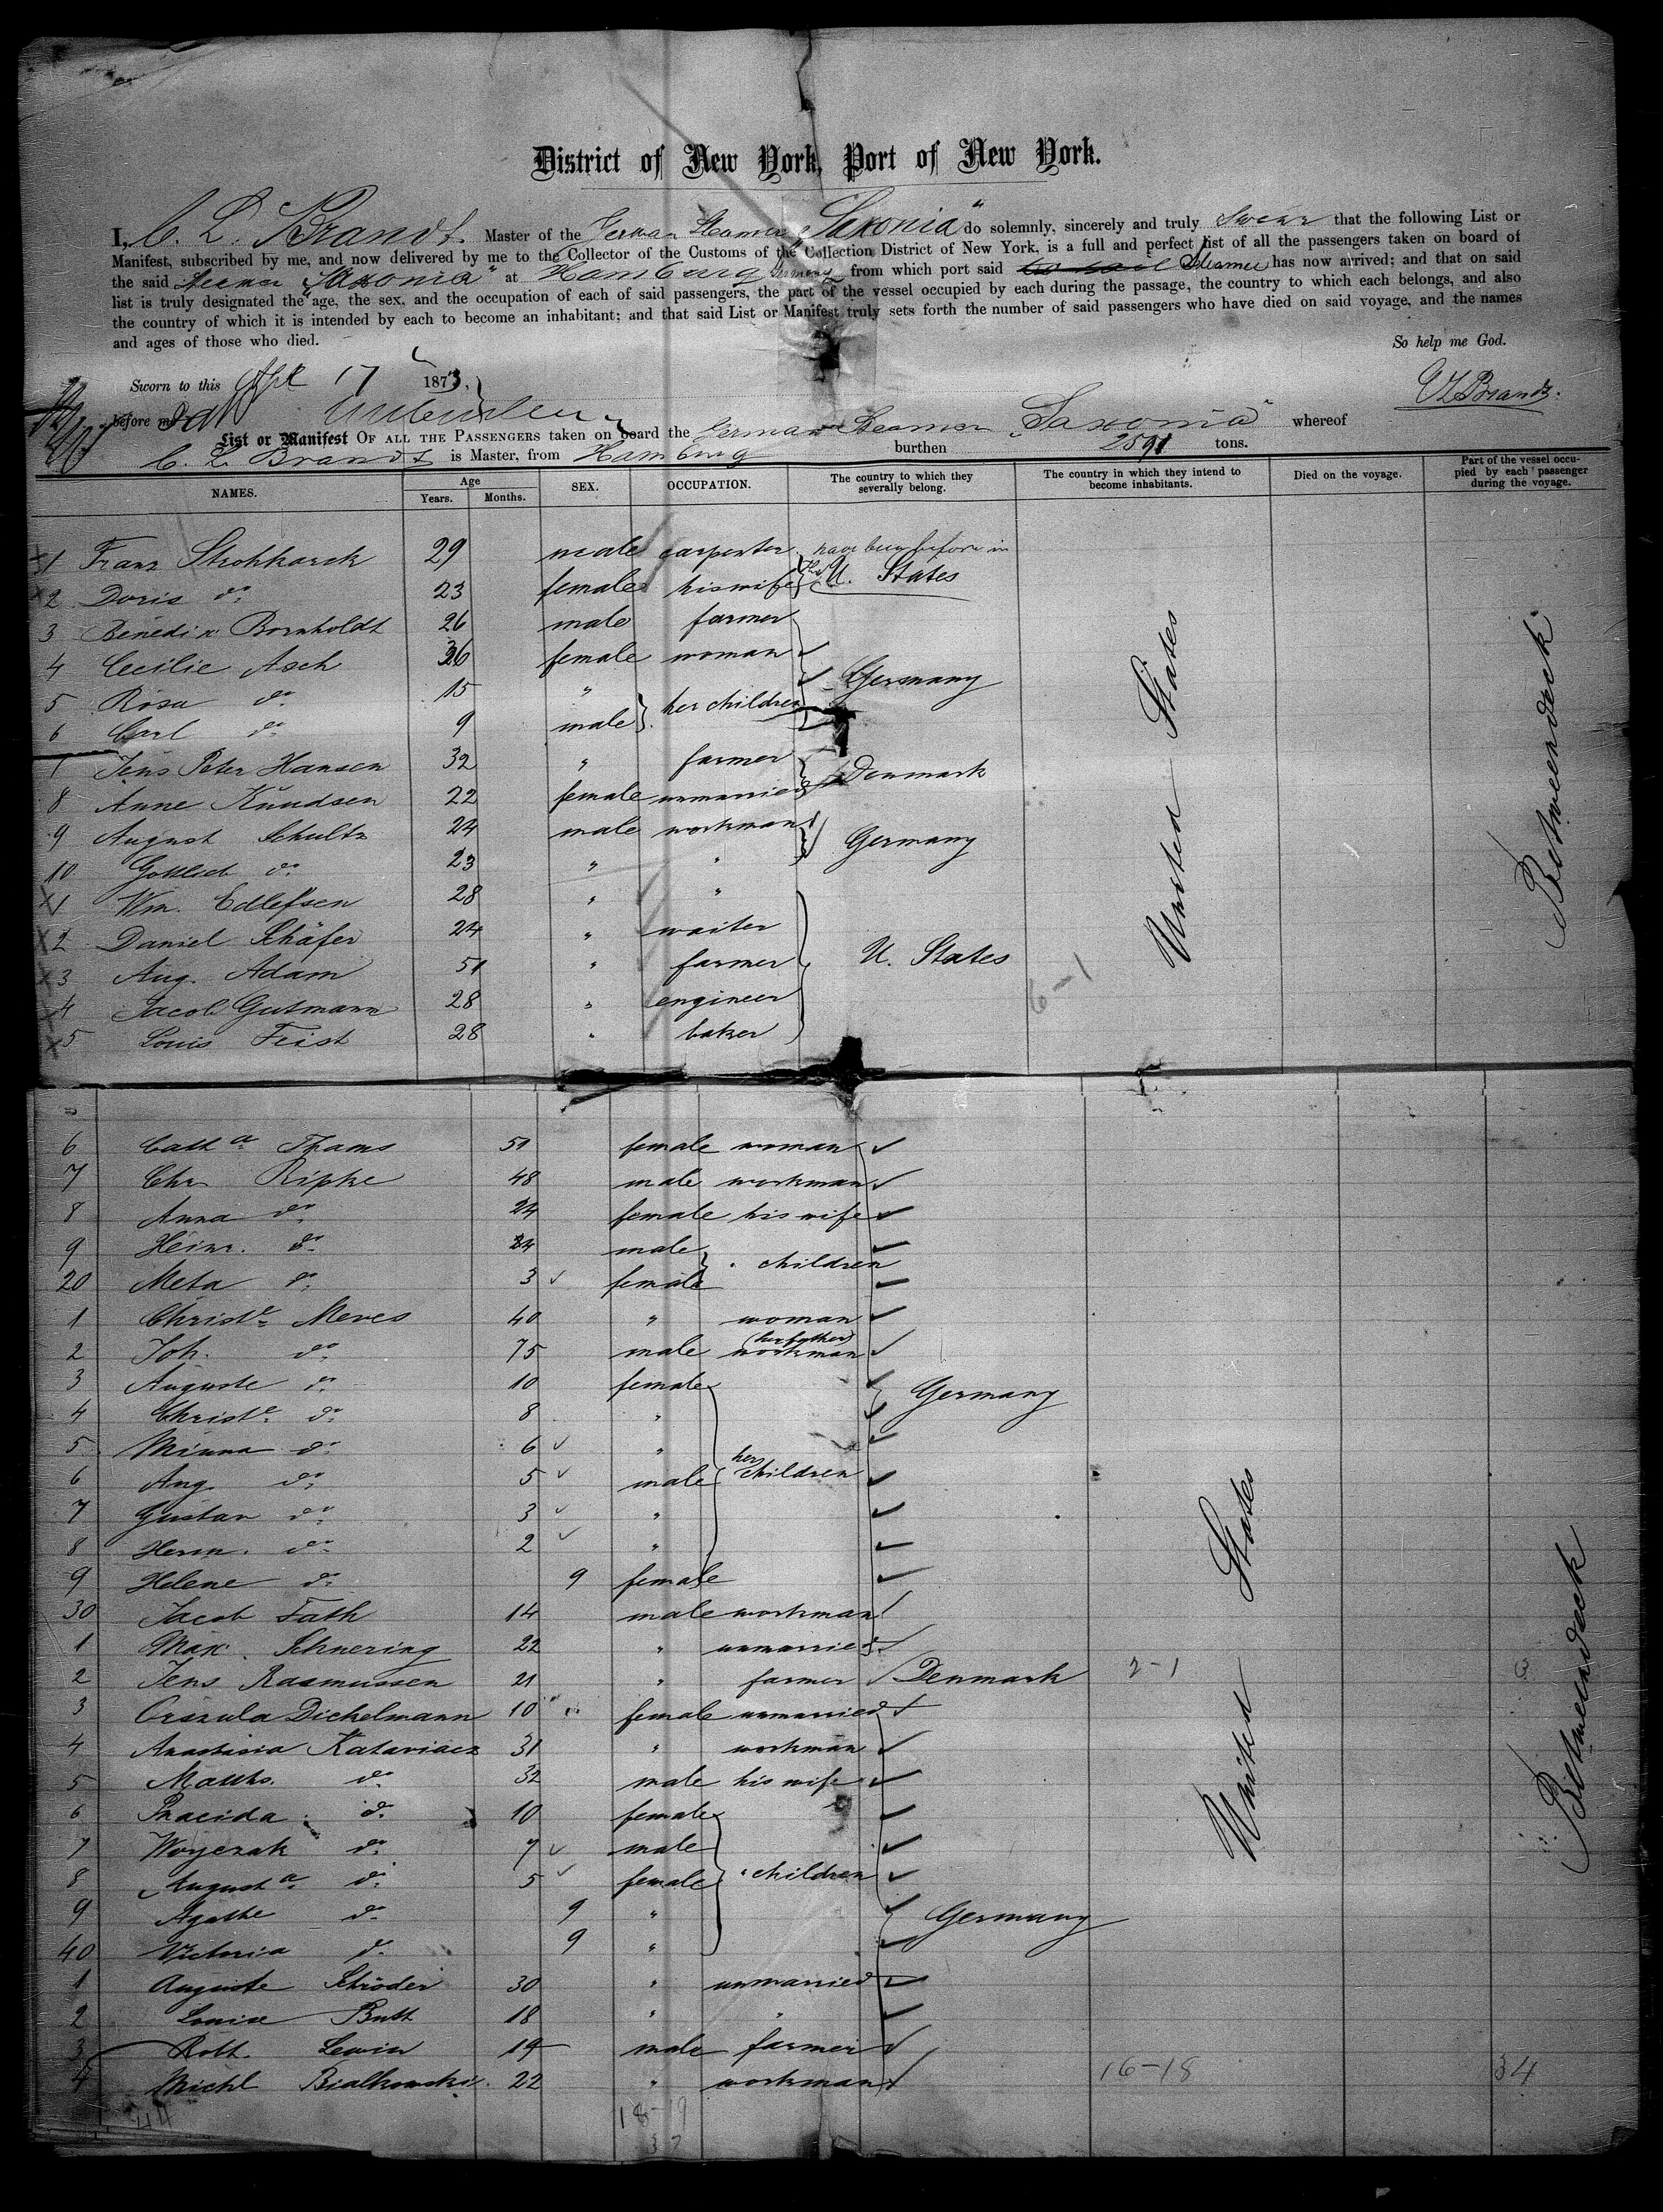 District of New York, Port of New York.
I, C. L. Brandt. Master of the German Steamer "Saxonia" do solemnly, sincerely and truly Swear that the following List or
Manifest, subscribed by me, and now delivered by me to the Collector of the Customs of the Collection District of New York, is a full and perfect list of all the passengers taken on board of
the said Steamer "Saxonia" at Hamburg Germany from which port said Steamer has now arrived; and that on said
list is truly designated the age, the sex, and the occupation of each of said passengers, the part of the vessel occupied by each during the passage, the country to which each belongs, and also
the country of which it is intended by each to become an inhabitant; and that said List or Manifest truly sets forth the number of said passengers who have died on said voyage, and the names
and ages of those who died. So help me God.
Sworn to this Apl 17 1873,
before me C L Brandt.
List or Manifest OF ALL THE PASSENGERS taken on board the German Steamer "Saxonia" whereof
C. L. Brandt is Master, from Hamburg burthen 2591 tons.
NAMES. Age Years. Months. SEX. OCCUPATION. The country to which they severally belong. The country in which they intend to become inhabitants. Died on the voyage. Part of the vessel occupied by each passenger during the voyage.
1 Franz Strohkarck 29 male carpenter have been before in
2 Doris do. 23 female his wife the U. States
3 Benedix Bornholdt 26 male farmer
4 Cecilie Asch 36 female woman
5 Rosa do. 15 " her children Germany
6 Carl do. 9 male
7 Jens Peter Hansen 32 " farmer Denmark
8 Anne Knudsen 22 female unmarried
9 August Schultz 24 male workman Germany
10 Gottlieb do. 23 " "
1 Wm. Edlefsen 28 " "
2 Daniel Schäfer 24 " waiter
3 Aug. Adam 51 " farmer U. States
4 Jacob Gutmann 28 " engineer
5 Louis Feist 28 " baker
United States
Betweendeck
6-1
6 Catha Thams 51 female woman
7 Chr Ripke 48 male workman
8 Anna do. 24 female his wife
9 Heinr. do. male
20 Meta do. 3 female children
1 Christe Meves 40 " woman
2 Joh. do. 75 male (her father) workman
3 Auguste do. 10 female Germany
4 Christe do. 8 "
5 Minna do. 6 "
6 Aug. do. 5 male her children
7 Gustav do. 3 "
8 Herm. do. 2 "
9 Helene do. 9 female
30 Jacob Fath 14 male workman
1 Max Schnering 22 " unmarried
2 Jens Rasmussen 21 " farmer Denmark 2-1
3 Orszula Dichelmann 10 female unmarried
4 Anastasia Kataviacz 31 " workman
5 Matths. do. 32 male his wife
6 Pracida do. 10 female
7 Woyczak do. 7 male
8 Augusta do. 5 female children
9 Agathe do. 9 " Germany
40 Victoria do. 9 "
1 Auguste Schröder 30 " unmarried
2 Louise Butt 18 " "
3 Robt. Lewin 19 male farmer
4 Michl Bialkowski 22 " workman 16-18 34
United States
Betweendeck
44 18-19
37